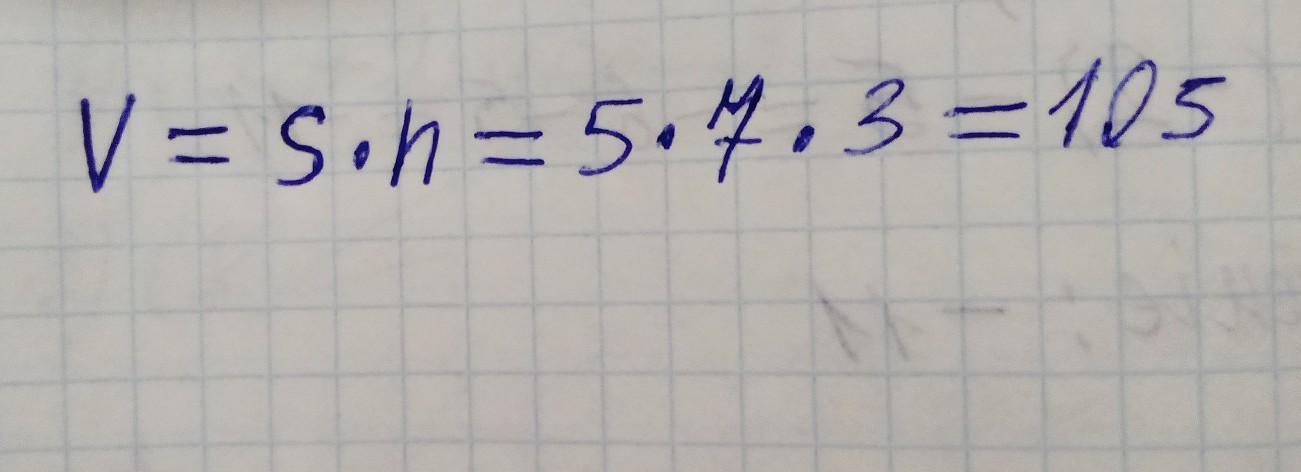 V = S · h = 5 · 7 · 3 = 105